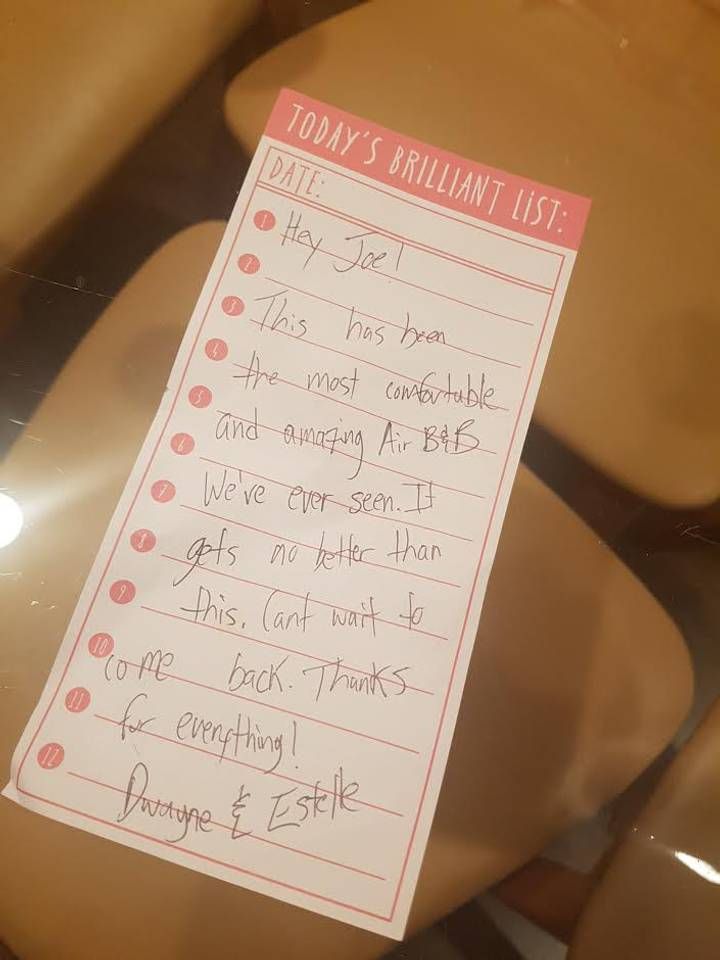 TODAY'S BRILLIANT LIST:
DATE:
1 Hey Joe!
2
3 This has been
4 the most comfortable
5 and amazing Air B&B
6 We've ever seen. It
7 gets no better than
8 this. Cant wait to
9 come back. Thanks
10 for everything!
11 Dwayne & Estelle
12